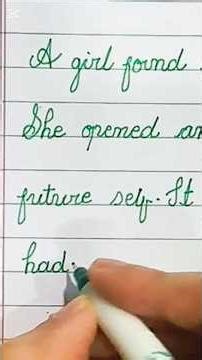 A girl found
She opened an
future self. It
had